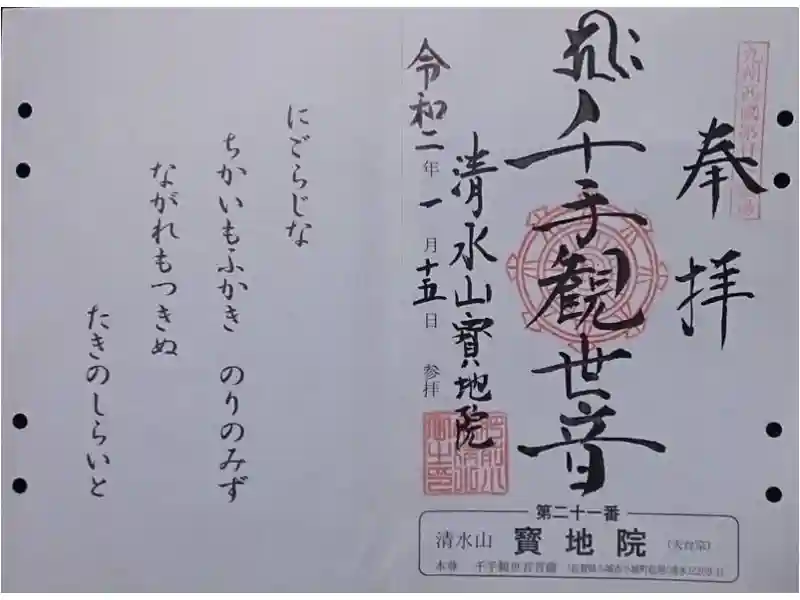 奉拝
千手観世音
清水山寳地院
令和二年一月十五日 参拝
第二十一番
清水山 寳地院 (天台宗)
本尊 千手観世音菩薩
にごらじな
ちかいもふかき のりのみず
ながれもつきぬ
たきのしらいと